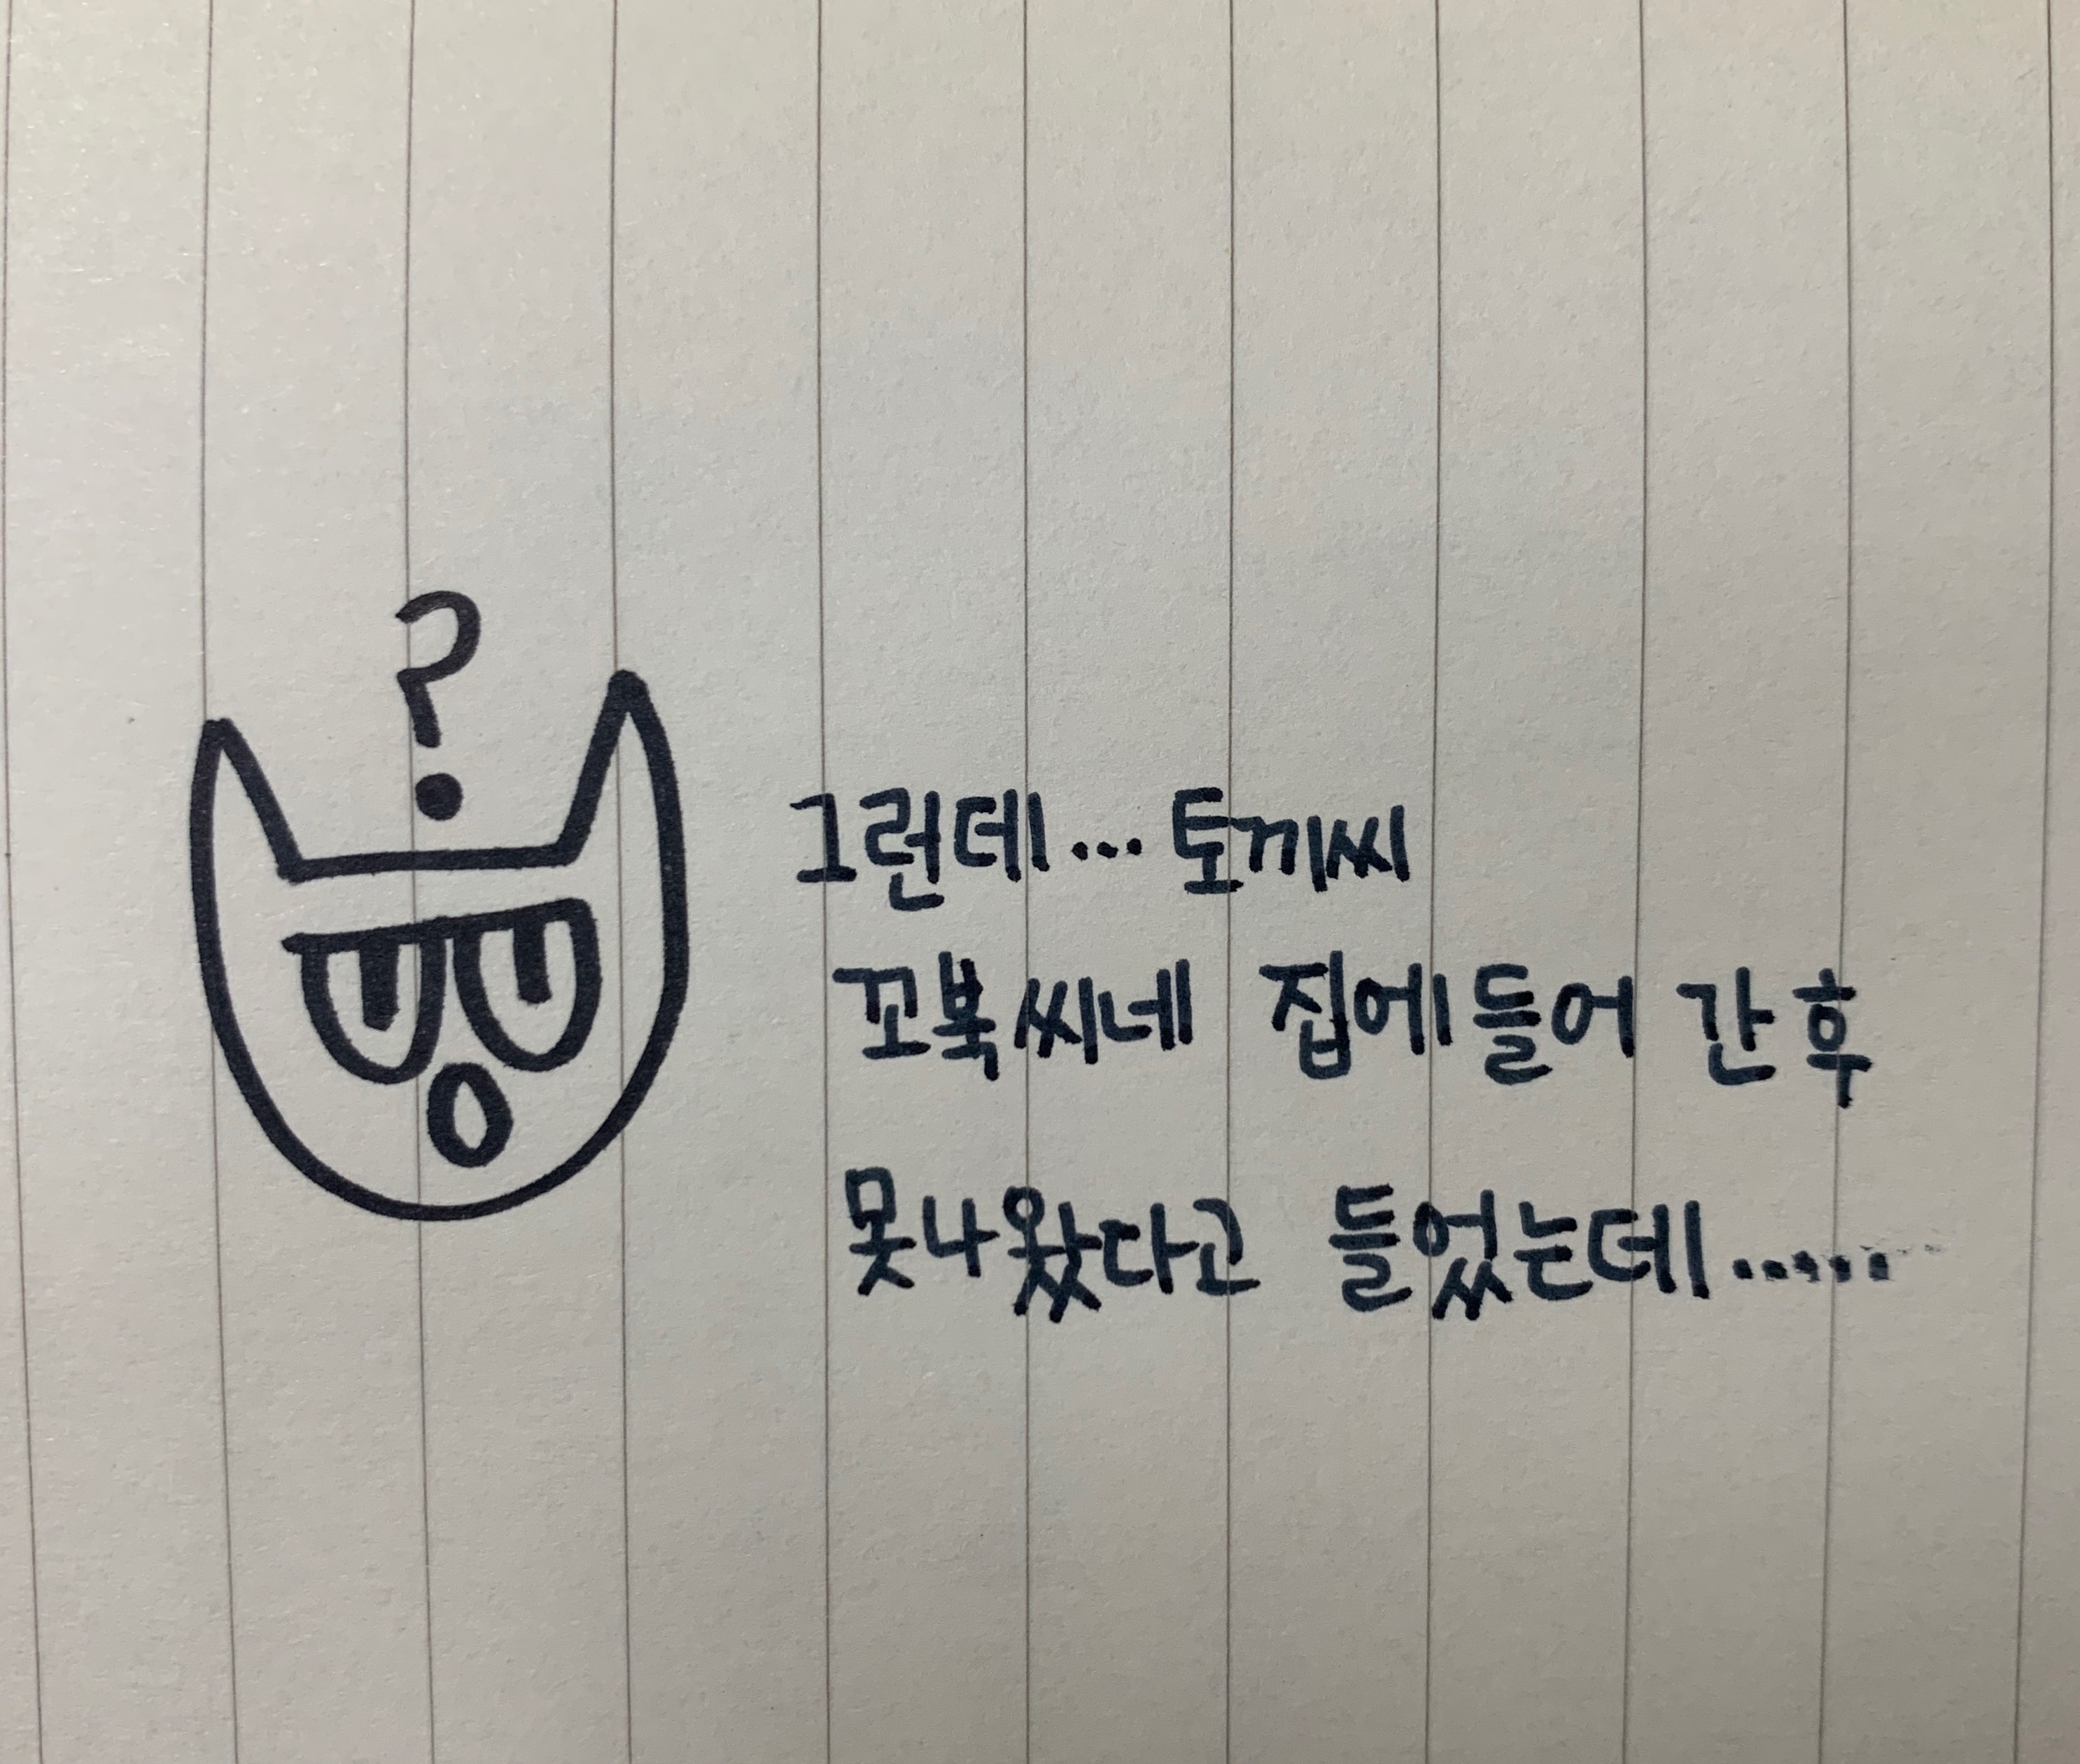 ?
그런데... 토끼씨
꼬북씨네 집에들어 간 후
못나왔다고 들었는데......